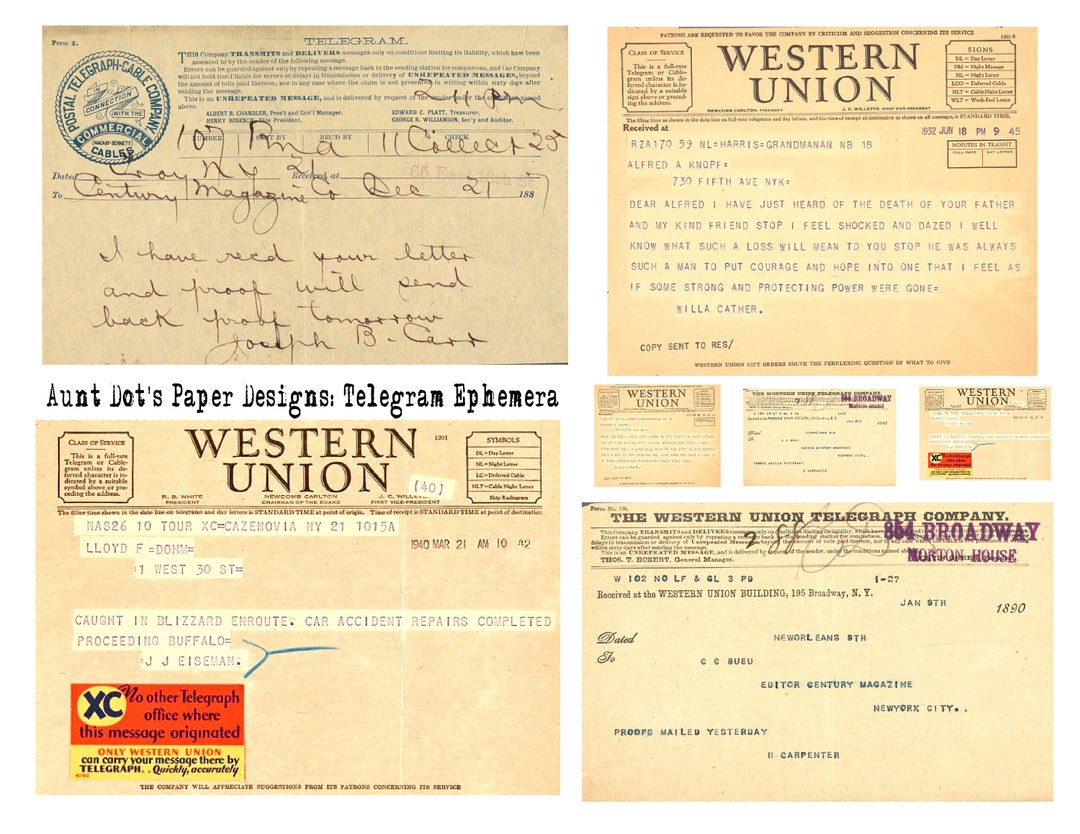 Form 2.
TELEGRAM.
POSTAL TELEGRAPH-CABLE COMPANY
IN CONNECTION WITH THE
(MACKAY-BENNETT)
COMMERCIAL CABLES
THIS Company TRANSMITS and DELIVERS messages only on conditions limiting its liability, which have been
assented to by the sender of the following message.
Errors can be guarded against only by repeating a message back to the sending station for comparison, and the Company
will not hold itself liable for errors or delays in transmission or delivery of UNREPEATED MESSAGES, beyond
the amount of tolls paid thereon; nor in any case where the claim is not presented in writing within sixty days after
sending the message.
This is an UNREPEATED MESSAGE, and is delivered by request of the sender under the conditions named
above.
ALBERT B. CHANDLER, Pres't and Gen'l Manager. EDWARD C. PLATT, Treasurer.
HENRY ROSENER, Vice President. GEORGE B. WILLIAMSON, Sec'y and Auditor.
NUMBER SENT BY REC'D BY CHECK
10 11 Collect 25
Dated Troy NY 21 Received at
To Century Magazine Co Dec 21 188
I have recd your letter
and proof will send
back proof tomorrow
Joseph B. Carr
PATRONS ARE REQUESTED TO FAVOR THE COMPANY BY CRITICISM AND SUGGESTION CONCERNING ITS SERVICE
CLASS OF SERVICE
This is a full-rate
Telegram or Cable-
gram unless its de-
ferred character is
indicated by a suitable
sign above or preced-
ing the address.
WESTERN
UNION
NEWCOMB CARLTON, PRESIDENT
J. C. WILLEVER, FIRST VICE-PRESIDENT
SIGNS
DL = Day Letter
NM = Night Message
NL = Night Letter
LCO = Deferred Cable
NLT = Cable Night Letter
WLT = Week-End Letter
The filing time as shown in the date line on full-rate telegrams and day letters, and the time of receipt at destination as shown on all messages, is STANDARD TIME.
Received at
1932 JUN 18 PM 9 45
MINUTES IN TRANSIT
FULL-RATE DAY LETTER
RZA170 59 NL=HARRIS=GRANDMANAN NB 18
ALFRED A KNOPF=
730 FIFTH AVE NYK=
DEAR ALFRED I HAVE JUST HEARD OF THE DEATH OF YOUR FATHER
AND MY KIND FRIEND STOP I FEEL SHOCKED AND DAZED I WELL
KNOW WHAT SUCH A LOSS WILL MEAN TO YOU STOP HE WAS ALWAYS
SUCH A MAN TO PUT COURAGE AND HOPE INTO ONE THAT I FEEL AS
IF SOME STRONG AND PROTECTING POWER WERE GONE=
WILLA CATHER.
COPY SENT TO RES/
WESTERN UNION GIFT ORDERS SOLVE THE PERPLEXING QUESTION OF WHAT TO GIVE
Aunt Dot's Paper Designs: Telegram Ephemera
WESTERN
UNION
854 BROADWAY
WESTERN
UNION
XC
CLASS OF SERVICE
This is a full-rate
Telegram or Cable-
gram unless its de-
ferred character is
indicated by a suitable
symbol above or pre-
ceding the address.
WESTERN
UNION
1201
(40)
R. B. WHITE
PRESIDENT
NEWCOMB CARLTON
CHAIRMAN OF THE BOARD
J. C. WILLEVER
FIRST VICE-PRESIDENT
SYMBOLS
DL = Day Letter
NL = Night Letter
LC = Deferred Cable
NLT = Cable Night Letter
Ship Radiogram
The filing time shown in the date line on telegrams and day letters is STANDARD TIME at point of origin. Time of receipt is STANDARD TIME at point of destination
NAS26 10 TOUR XC=CAZENOVIA NY 21 1015A
LLOYD F =DOHM=
1940 MAR 21 AM 10 42
:1 WEST 30 ST=
CAUGHT IN BLIZZARD ENROUTE. CAR ACCIDENT REPAIRS COMPLETED
PROCEEDING BUFFALO=
:J J EISEMAN.
XC No other Telegraph
office where
this message originated
ONLY WESTERN UNION
can carry your message there by
TELEGRAPH.. Quickly, accurately
THE COMPANY WILL APPRECIATE SUGGESTIONS FROM ITS PATRONS CONCERNING ITS SERVICE
THE WESTERN UNION TELEGRAPH COMPANY.
854 BROADWAY
MORTON HOUSE
THOS. T. ECKERT, General Manager.
W 102 NO LF & GL 3 PD 1-27
Received at the WESTERN UNION BUILDING, 195 Broadway, N. Y.
JAN 9TH 1890
Dated NEWORLEANS 9TH
To C C BUEU
EDITOR CENTURY MAGAZINE
NEWYORK CITY..
PROOFS MAILED YESTERDAY
H CARPENTER